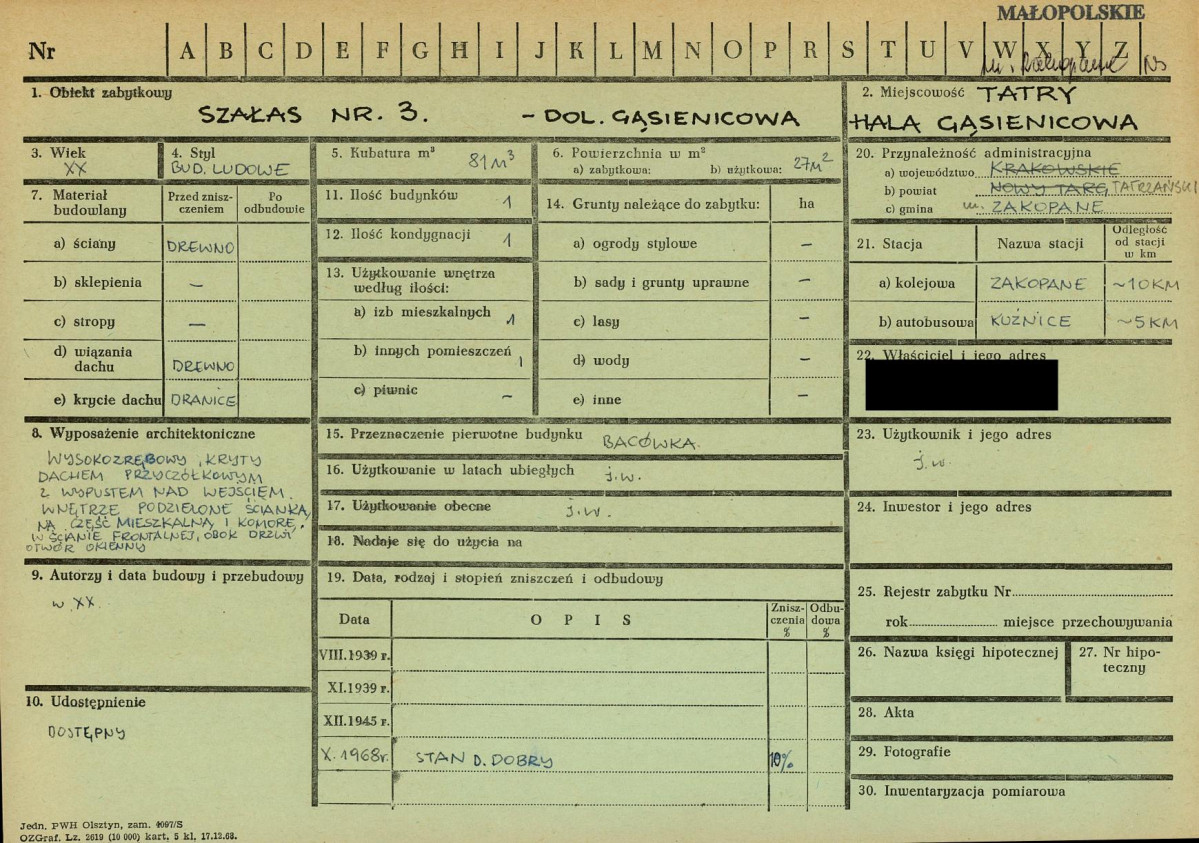 MAŁOPOLSKIE
Nr A B C D E F G H I J K L M N O P R S T U V W X Y Z
m. Zakopane Ns
1. Obiekt zabytkowy
SZAŁAS NR. 3. - DOL. GĄSIENICOWA
2. Miejscowość TATRY
HALA GĄSIENICOWA
3. Wiek
XX
4. Styl
BUD. LUDOWE
5. Kubatura m³ 81 m³
6. Powierzchnia w m²
a) zabytkowa: b) użytkowa: 27m²
20. Przynależność administracyjna
a) województwo KRAKOWSKIE
b) powiat NOWY TARG, TATRZAŃSKI
c) gmina m. ZAKOPANE
7. Materiał budowlany
Przed zniszczeniem
Po odbudowie
a) ściany DREWNO
b) sklepienia —
c) stropy —
d) wiązania dachu DREWNO
e) krycie dachu DRANICE
11. Ilość budynków 1
12. Ilość kondygnacji 1
13. Użytkowanie wnętrza
według ilości:
a) izb mieszkalnych 1
b) innych pomieszczeń 1
c) piwnic —
14. Grunty należące do zabytku: ha
a) ogrody stylowe —
b) sady i grunty uprawne —
c) lasy —
d) wody —
e) inne —
21. Stacja Nazwa stacji Odległość od stacji w km
a) kolejowa ZAKOPANE ~10 KM
b) autobusowa KUŹNICE ~5 KM
22. Właściciel i jego adres
8. Wyposażenie architektoniczne
WYSOKOZRĘBOWY, KRYTY
DACHEM PRZYCZÓŁKOWYM
Z WYPUSTEM NAD WEJŚCIEM.
WNĘTRZE PODZIELONE ŚCIANKĄ
NA CZĘŚĆ MIESZKALNĄ I KOMORĘ.
W ŚCIANIE FRONTALNEJ, OBOK DRZWI,
OTWÓR OKIENNY
15. Przeznaczenie pierwotne budynku BACÓWKA.
16. Użytkowanie w latach ubiegłych j.w.
17. Użytkowanie obecne j.w.
18. Nadaje się do użycia na
23. Użytkownik i jego adres
j.w.
24. Inwestor i jego adres
9. Autorzy i data budowy i przebudowy
w XX.
19. Data, rodzaj i stopień zniszczeń i odbudowy
Data OPIS Zniszczenia % Odbudowa %
VIII.1939 r.
XI.1939 r.
XII.1945 r.
X. 1968r. STAN D. DOBRY 10%
25. Rejestr zabytku Nr
rok miejsce przechowywania
26. Nazwa księgi hipotecznej
27. Nr hipoteczny
10. Udostępnienie
DOSTĘPNY
28. Akta
29. Fotografie
30. Inwentaryzacja pomiarowa
Jedn. PWH Olsztyn, zam. 4097/S
OZGraf. Lz. 2619 (10 000) kart. 5 kl. 17.12.68.